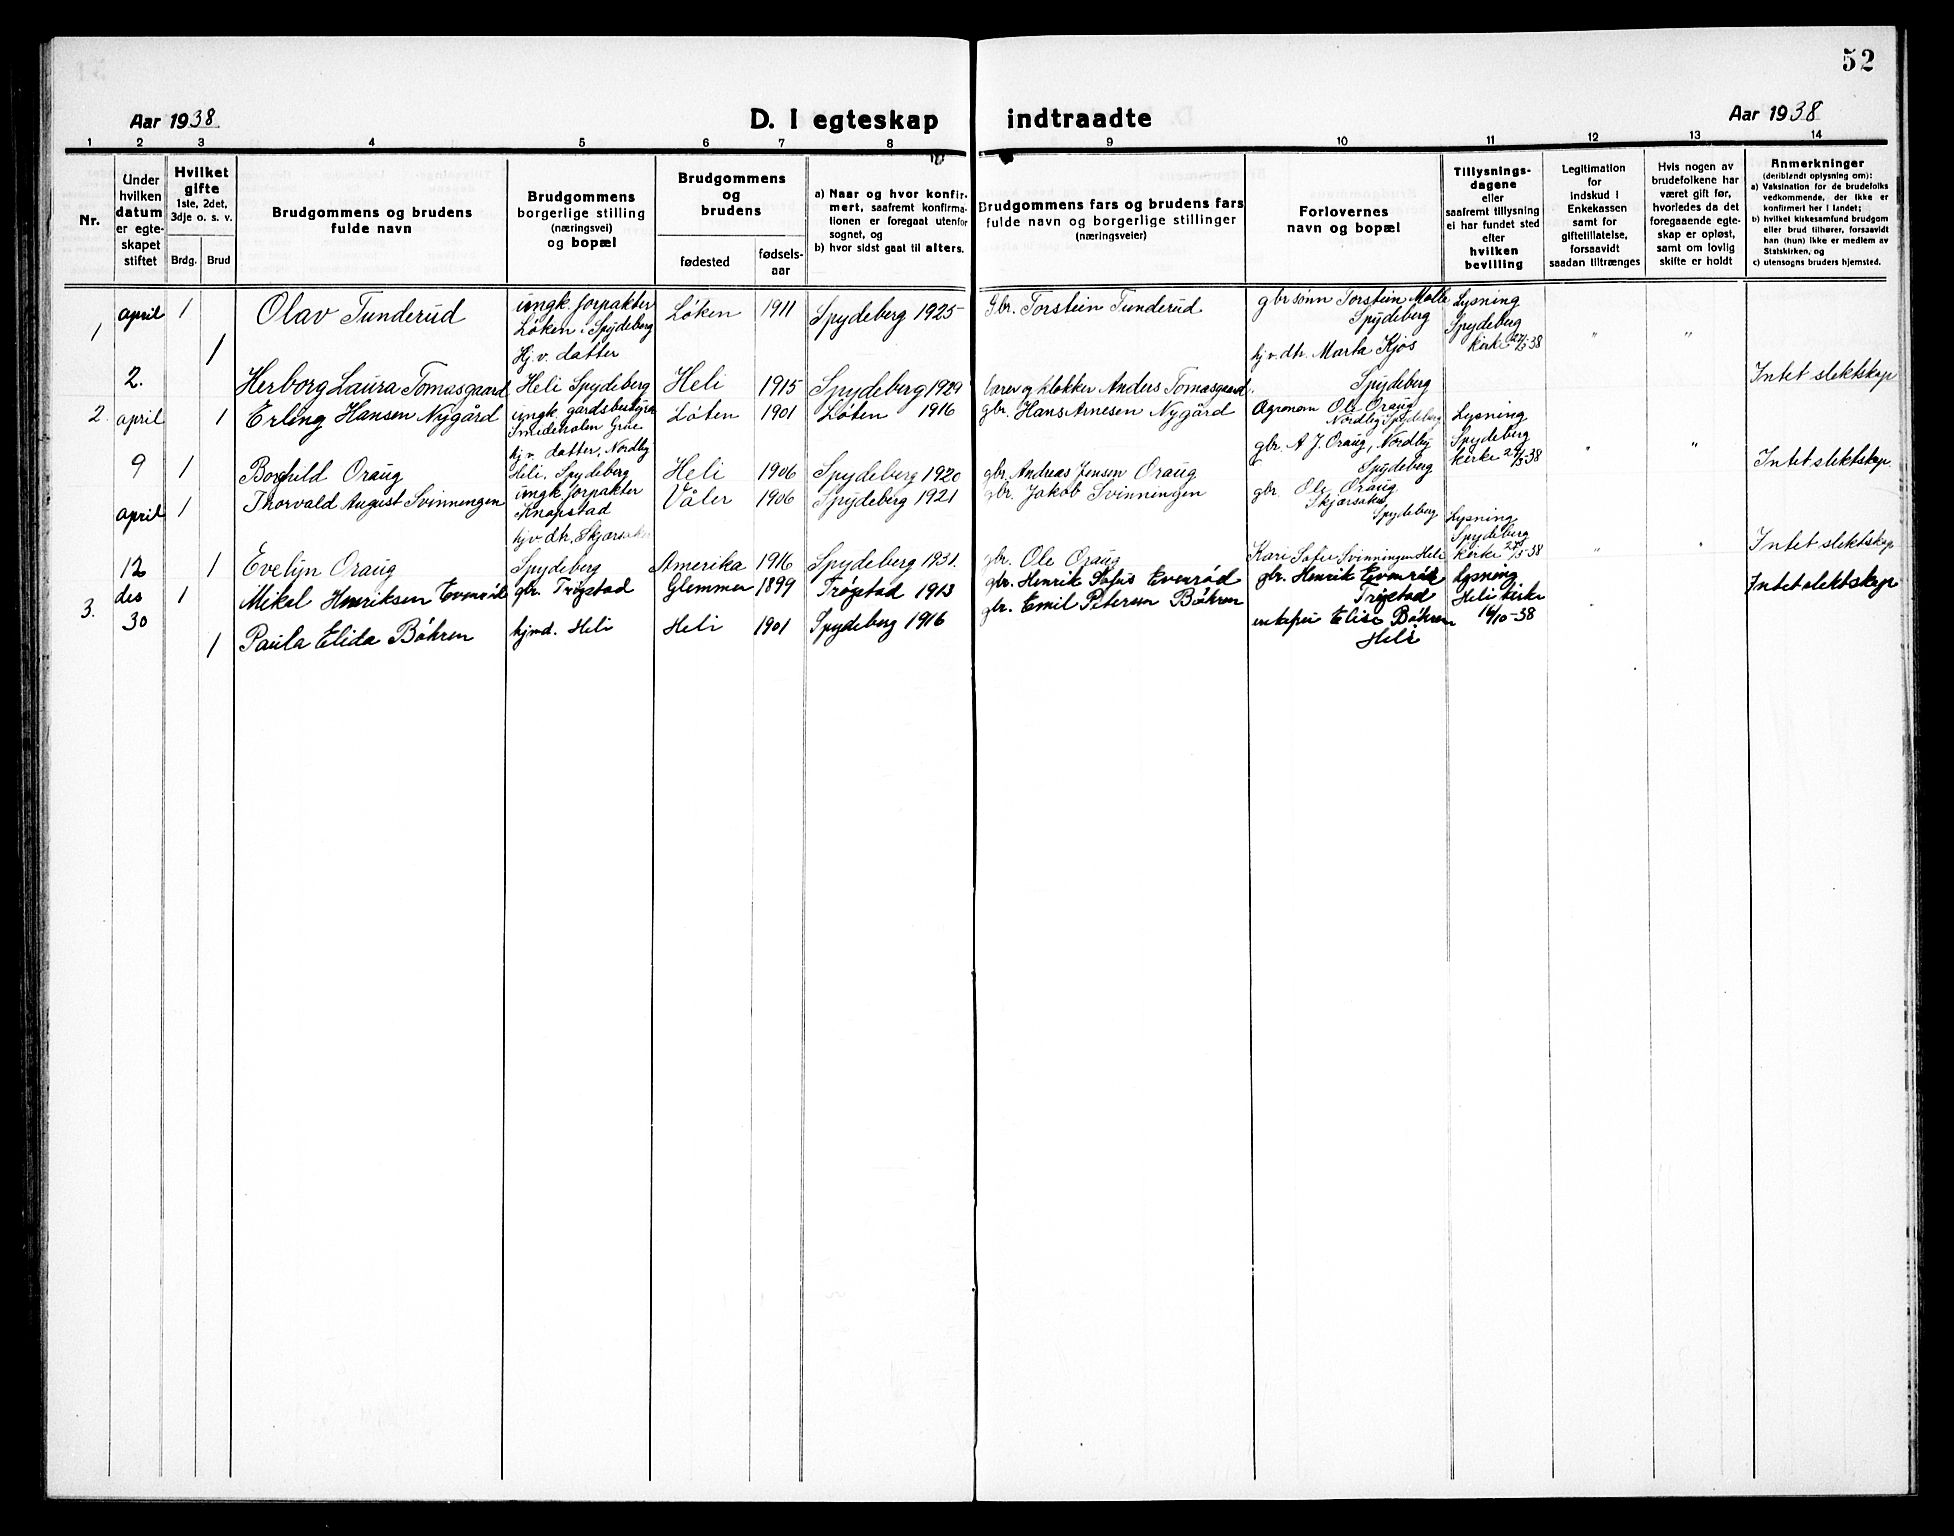 52
Aar 1938
D. I egteskap indtraadte
Aar 1938
1 2 3 4 5 6 7 8 9 10 11 12 13 14
Nr.
Under
hvilken
datum
er egte-
skapet
stiftet
Hvilket
gifte
1ste, 2det,
3dje o. s. v.
Brdg. Brud
Brudgommens og brudens
fulde navn
Brudgommens
borgerlige stilling
(næringsvei)
og bopæl
Brudgommens
og
brudens
fødested
fødsels-
aar
a) Naar og hvor konfir-
mert, saafremt konfirma-
tionen er foregaat utenfor
sognet, og
b) hvor sidst gaat til alters.
Brudgommens fars og brudens fars
fulde navn og borgerlige stillinger
(næringsveier)
Forlovernes
navn og bopæl
Tillysnings-
dagene
eller
saafremt tillysning
ei har fundet sted
efter
hvilken
bevilling
Legitimation
for
indskud i
Enkekassen
samt for
giftetillatelse,
forsaavidt
saadan tiltrænges
Hvis nogen av
brudefolkene har
været gift før,
hvorledes da det
foregaaende egte-
skap er opløst,
samt om lovlig
skifte er holdt
Anmerkninger
(deriblendt oplysning om):
a) Vaksination for de brudefolks
vedkommende, der ikke er
konfirmert her i landet;
b) hvilket kirkesamfund brudgom
eller brud tilhører, forsaavidt
han (hun) ikke er medlem av
Statskirken, og
c) utensogns bruders hjemsted.
1 april 1 Olav Tunderud
ungk. forpakter
Løken i Spydeberg
Løken 1911 Spydeberg 1925 Gbr. Torstein Tunderud
gbr sønn Torstein Molle
Spydeberg
Lysning
Spydeberg
kirke 27/3 38
" "
2. 1 Herborg Laura Tomasgaard
Hj.v. datter
Heli Spydeberg
Heli 1915 Spydeberg 1929 lærer og klokker Anders Tomasgaard
hj v. dtr. Marta Kjos
Spydeberg
Intet slektskap
2. april 1 Erling Hansen Nygård
ungk. gårdsbestyrer
Løten 1901 Løten 1916 gbr. Hans Arnesen Nygård
Agronom Ole Oraug
Nordby Spydeberg
Lysning
Spydeberg
kirke 27/3 38
" "
9 1 Borghild Oraug
hj v. datter, Nordby
Heli, Spydeberg
Heli 1906 Spydeberg 1920 gbr. Andreas Jensen Oraug
gbr. A. J. Oraug, Nordby
Spydeberg
Intet slektskap
april 1 Thorvald August Svinningen
ungk. forpakter
Knapstad
Våler 1906 Spydeberg 1921 gbr. Jakob Svinningen
gbr Ole Oraug
Spydeberg
Lysning
Spydeberg
kirke 27/3-38
" "
12 1 Evelyn Oraug
Spydeberg
Amerika 1916 Spydeberg 1931. gbr. Ole Oraug
Kari Sofie Svinningen Heli
Intet slektskap
3. des 1 Mikal Henriksen Evenrød
gbr. Trøgstad
Glemmen 1899 Trøgstad 1913 gbr. Henrik Evenrød
gbr. Henrik Evenrød
Trøgstad
Lysning
Heli kirke
16/10-38
Intet slektskap
30 1 Paula Elida Bøhren
hjmd. Heli
Heli 1901 Spydeberg 1916 gbr. Emil Petersen Bøhren
Elise Bøhren
Heli